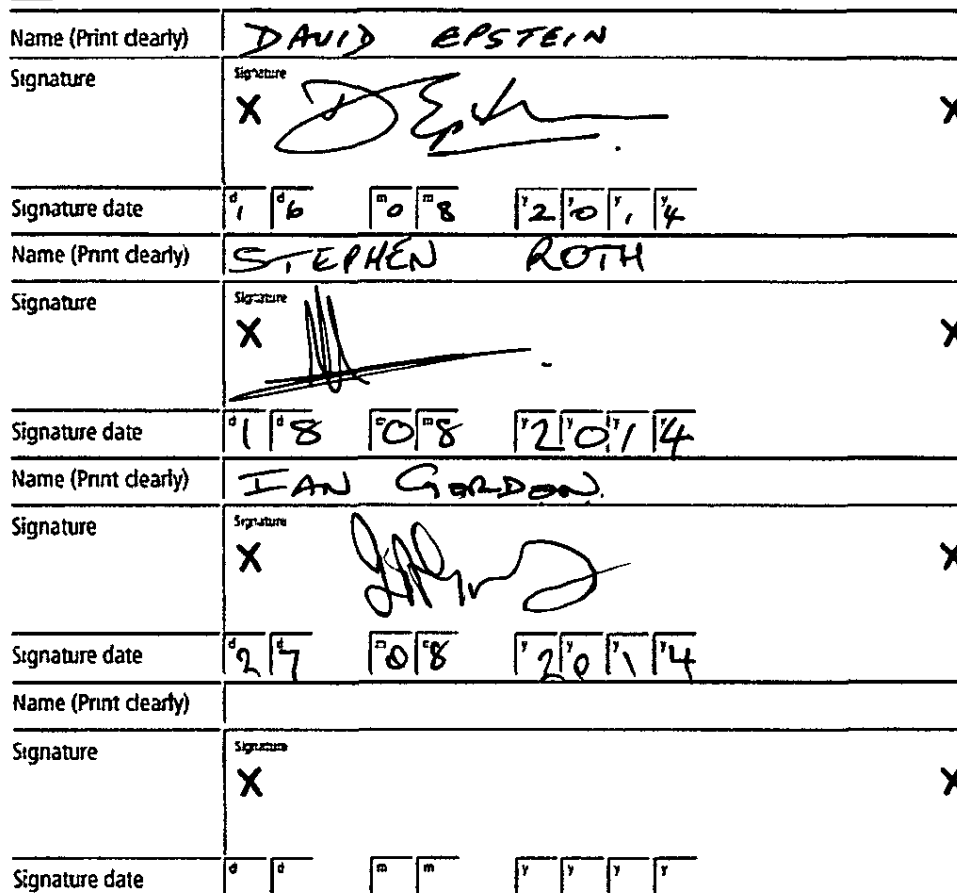 Name (Print clearly) DAVID EPSTEIN
Signature Signature
X X
Signature date d1 d6 m0 m8 y2 y0 y1 y4
Name (Print clearly) STEPHEN ROTH
Signature Signature
X X
Signature date d1 d8 m0 m8 y2 y0 y1 y4
Name (Print clearly) IAN GORDON.
Signature Signature
X X
Signature date d2 d7 m0 m8 y2 y0 y1 y4
Name (Print clearly)
Signature Signature
X X
Signature date d d m m y y y y